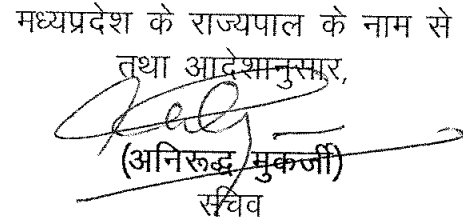 मध्यप्रदेश के राज्यपाल के नाम से
तथा आदेशानुसार,
(अनिरूद्ध मुकर्जी)
सचिव